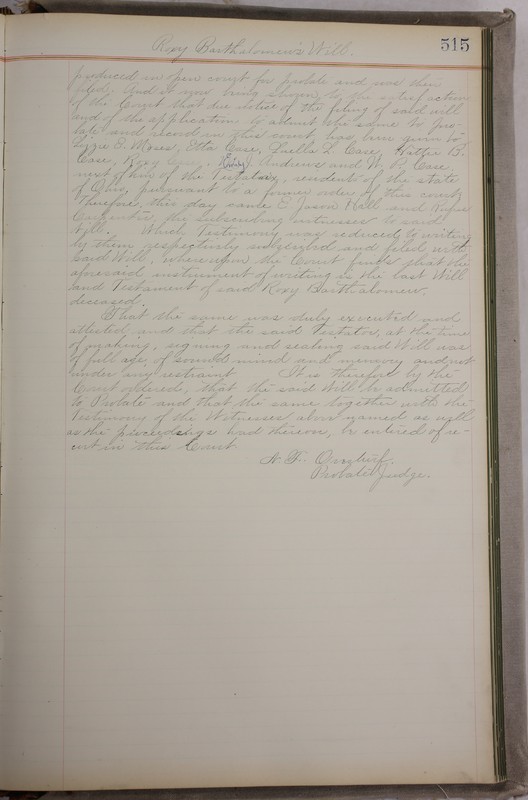 Roxy Bartholomew's Will.
515
produced in open court for probate and was then
filed. And it now being shown to the satisfaction
of the Court that due notice of the filing of said will
and of the application to admit the same to pro-
bate and record in this court has been given to
Lizzie E. Moses, Etta Case, Luella L. Case, Hattie B.
Case, Roxy Andrews and W. P. Case
next of kin of the Testatrix, residents of the state
of Ohio, pursuant to a former order of this court
Therefore, this day came E. Jason Hall and Rufus
Carpenter, the subscribing witnesses to said
Will. Which Testimony was reduced to writing
by them respectively subscribed and filed with
said Will, whereupon the Court finds that the
aforesaid instrument of writing is the last Will
and Testament of said Roxy Bartholomew,
deceased.
That the same was duly executed and
attested and that the said Testator, at the time
of making, signing and sealing said Will was
of full age of sound mind and memory and not
under any restraint It is therefore by the
Court ordered, that the said Will be admitted
to Probate and that the same together with the
Testimony of the Witnesses above named as well
as the proceedings had thereon, be entered of re-
cord in this Court.
Probate Judge.